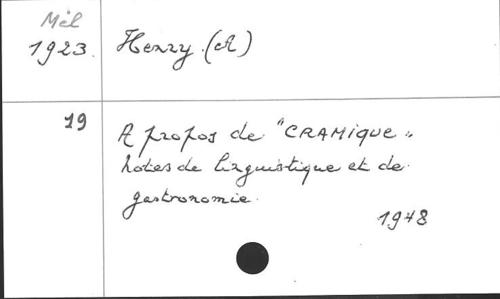 Mél
1923. Henry (A)
19 A propos de "CRAMIQUE"
notes de linguistique et de
gastronomie.
1948